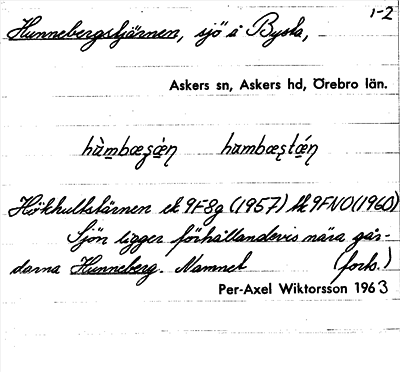 1-2
Hunnebergstjärnen, sjö i Bysta,
Askers sn, Askers hd, Örebro län.
Hökhultstärnen ek 9F8g (1957) tk 9FNO (1960)
Sjön ligger förhållandevis nära går-
darna Hunneberg. Namnet (forts.)
Per-Axel Wiktorsson 1963